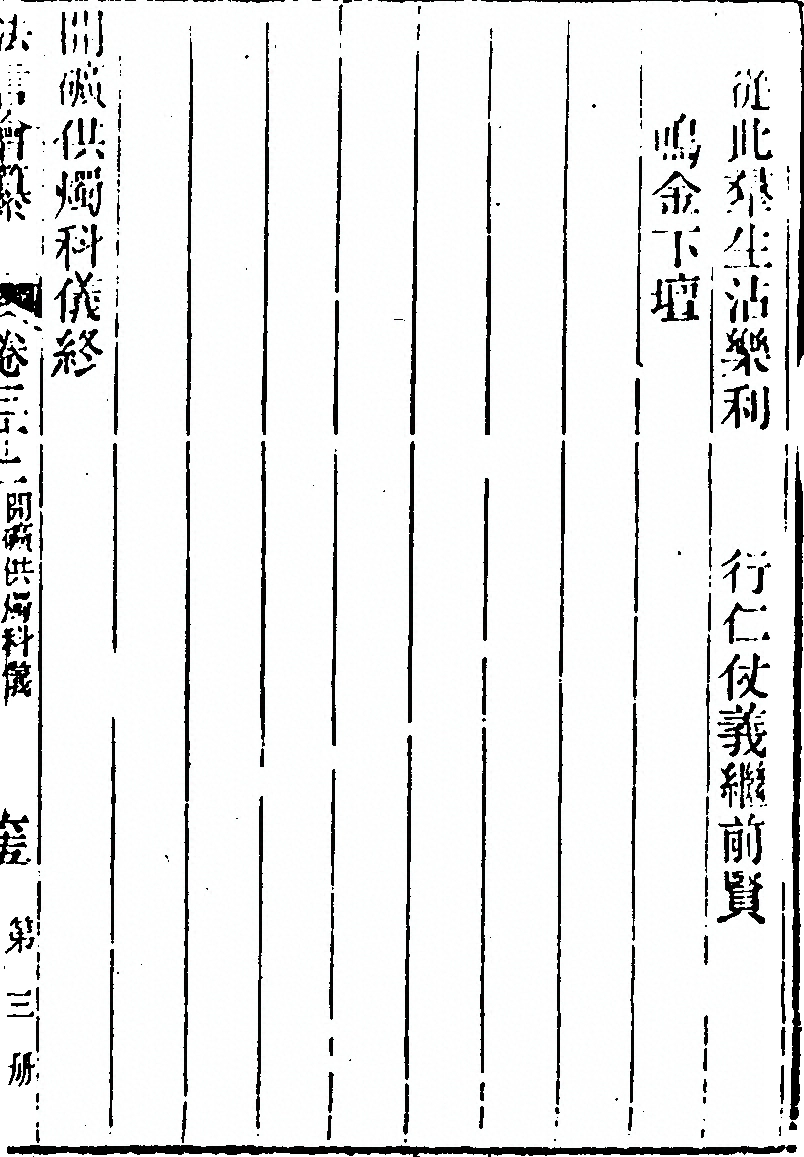 從此羣生沾樂利　行仁仗義繼前賢
鳴金下壇
開礦供燭科儀終
法言會纂　卷三　開礦供燭科儀　第三册